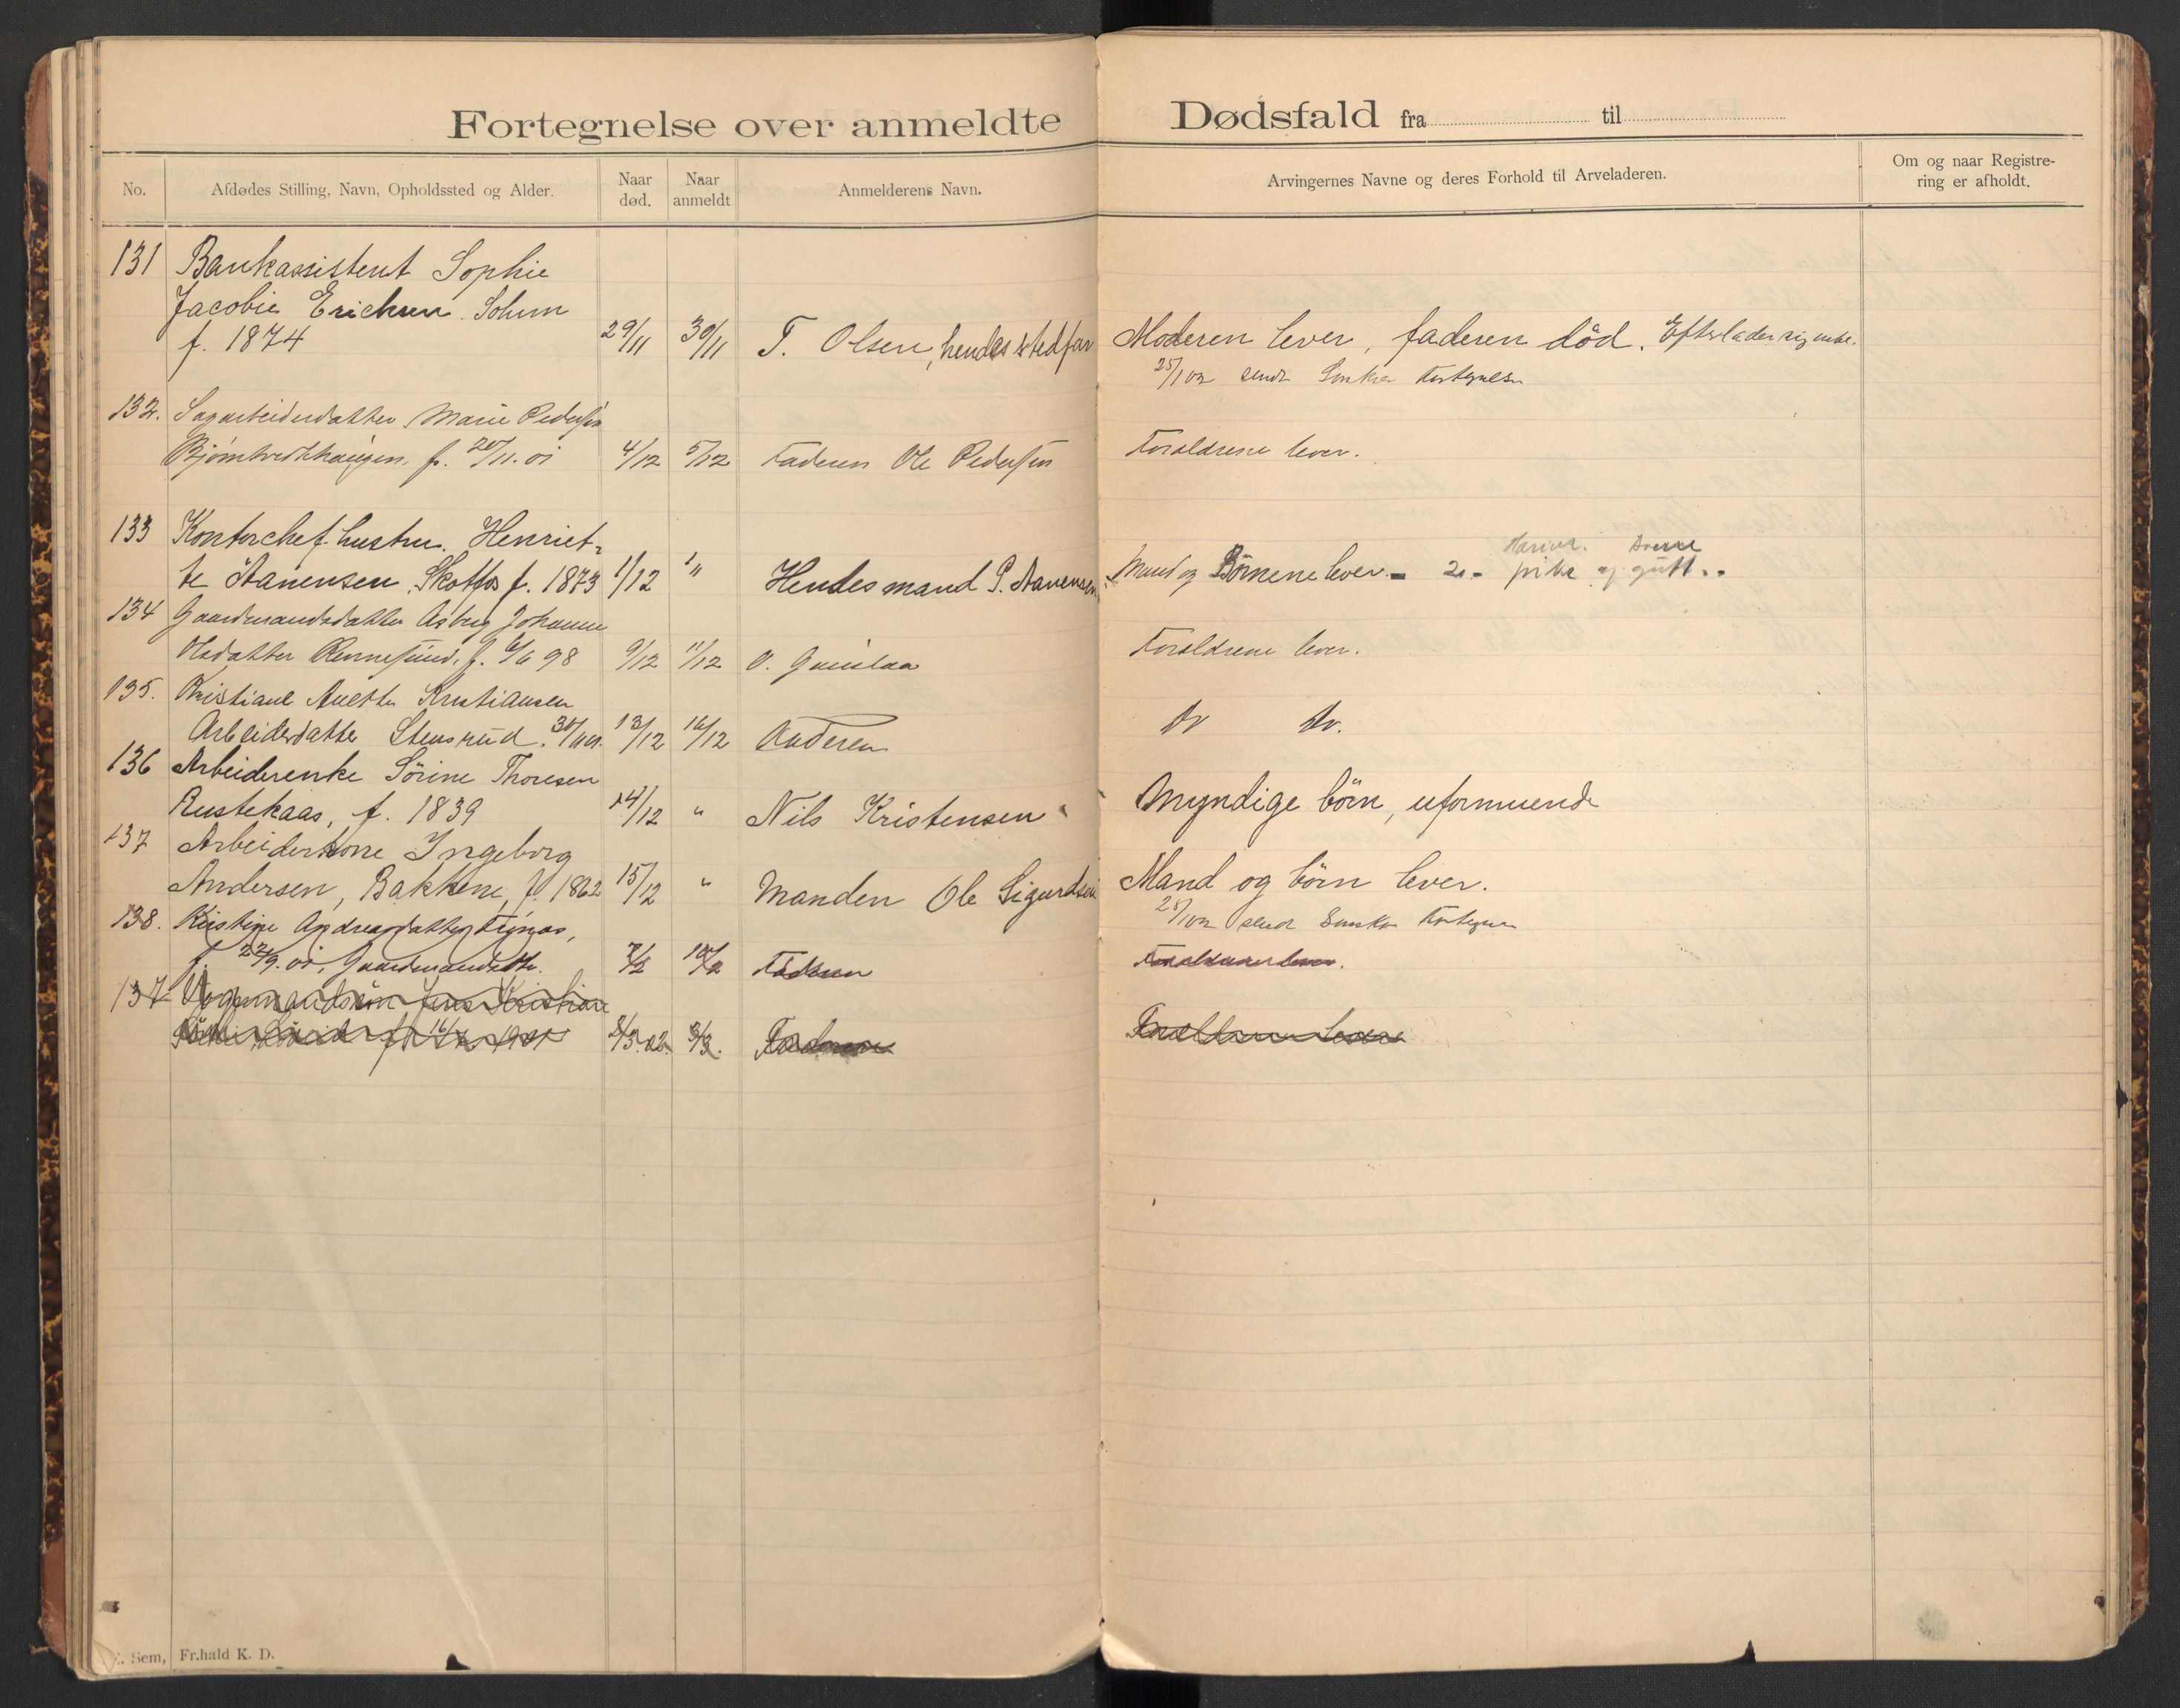 Fortegnelse over anmeldte Dødsfald fra til
No. Afdødes Stilling, Navn, Opholdssted og Alder. Naar død. Naar anmeldt Anmelderens Navn. Arvingernes Navne og deres Forhold til Arveladeren. Om og naar Registrering er afholdt.
131 Bankassistent Sophie
Jacobie Erichsen Solum
f. 1874 29/11 30/11 T. Olsen, hendes stedfar Moderen lever, faderen död. Efterlader sig intet.
25/1 02 sendt
132. Marie Pedersen
f. 20/11.01 4/12 5/12 Faderen Ole Pedersen Forældrene lever.
133 Kontorchef hustru. Henriet-
te Aanensen, Skotfos f. 1873 1/12 " Hendes mand P. Aanensen Mand og Börnene lever - 2 - pike og gutt
134 Gaardmandsdatter Asberg Johanne
Olsdatter f. 6/6 98 9/12 11/12 O. Forældrene lever.
135. Kristiane Anette Kristiansen
Arbeiderdatter Stensrud. 30/11 01. 13/12 16/12 Faderen Do Do.
136 Arbeiderenke Sörine Thoresen
Rustekaas, f. 1839 14/12 " Nils Kristensen Myndige börn, uformuende
137 Arbeiderkone Ingeborg
Andersen, Bakkene, f. 1862 15/12 " Manden Ole Sigurdsen Mand og börn lever.
sendt
138. Kristine Andreasdatter
f. 22/9.01, Gaardmandsdtr. 7/2 10/2 Faderen Forældrene lever.
137 Jens Kristian
16/ 1901 2/3.02. 3/3. Faderen Forældrene lever
Sem, Fr.hald K. D.